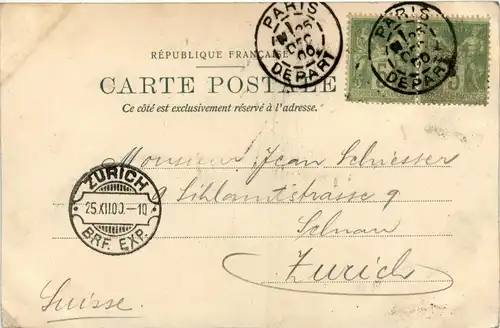 PARIS
DEC
00
DEPART
PARIS
DEC
DEPART
RÉPUBLIQUE FRANÇAISE
CARTE POSTALE
Ce côté est exclusivement réservé à l'adresse.
Monsieur Jean Schiesser
Sihlamtstrasse 9
Selnau
Zurich
Suisse.
ZÜRICH
25.XII.00.–10
BRF. EXP.